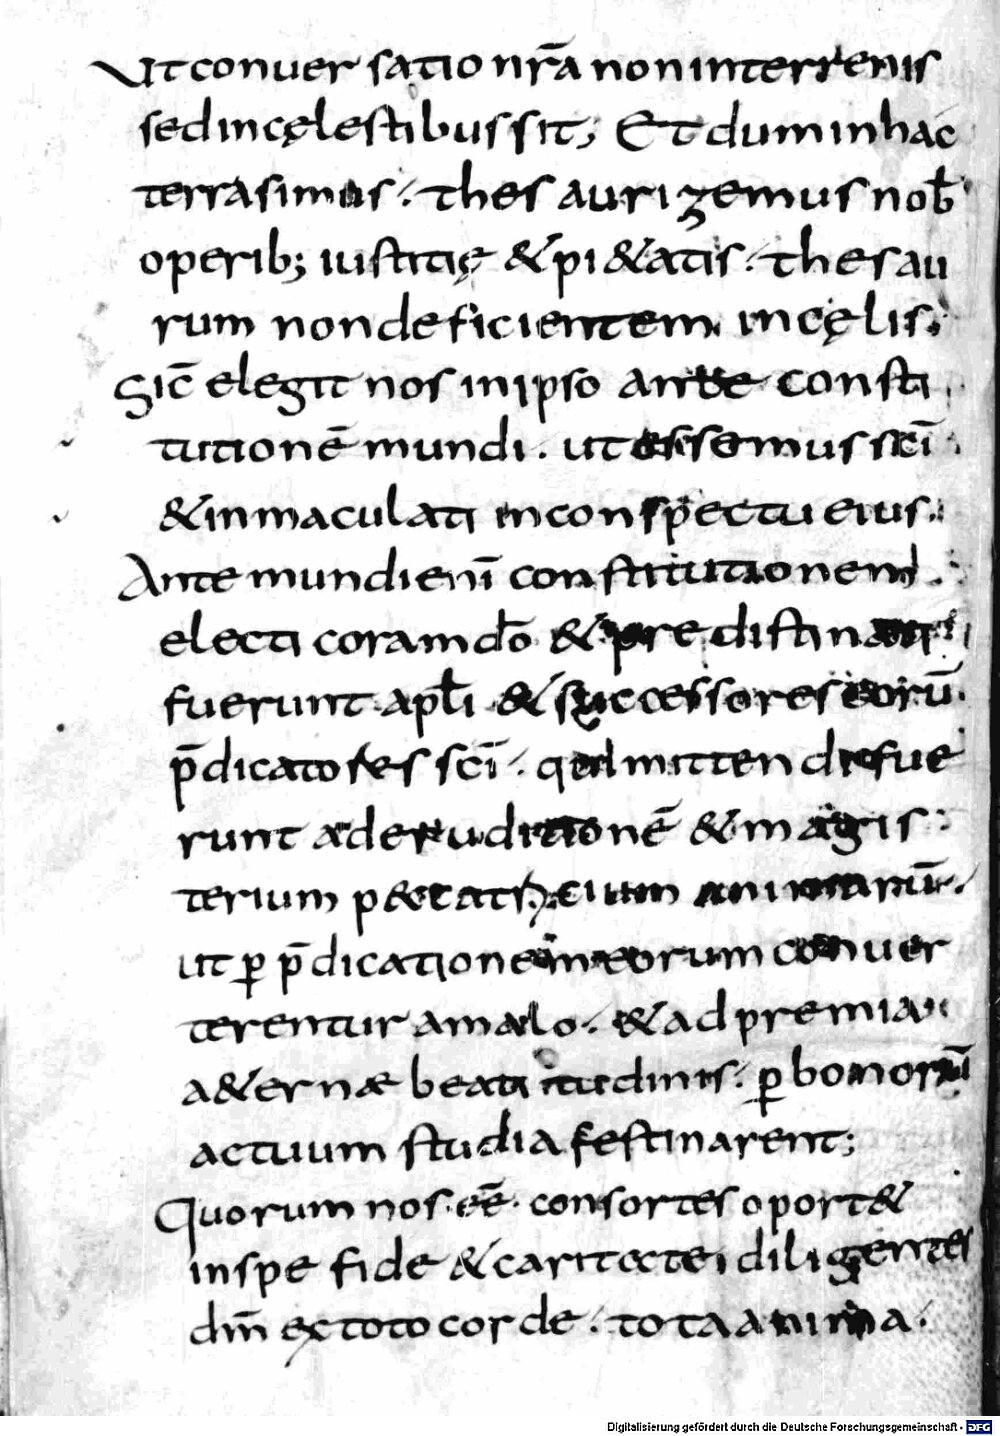 Ut conuersatio nr̄a non in terrenis
sed in cęlestibus sit; Et dum in hac
terra simus. thesaurizemus nob̄
operib; iustitię & pi&atis. thesau
rum non deficientem in cęlis.
Sic̄ elegit nos in ipso ante consti
tutionē mundi. ut essemus sc̄i
& inmaculati in conspectu eius.
Ante mundi eni̅ constitutionem
electi coram dō & predistinati
fuerunt apl̄i & successores eorū
p̄dicatores sc̄i. qui mittendi fue
runt ad eruditionē & magis
terium animarū.
ut ꝑ p̄dicationem eorum conuer
terentur a malo. & ad premia
a&ernæ beatitudinis. ꝑ bonorū
actuum studia festinarent;
Quorum nos eē consortes oport&
in spe fide & caritate diligentes
dm̄ ex toto corde. tota anima.
Digitalisierung gefördert durch die Deutsche Forschungsgemeinschaft - DFG